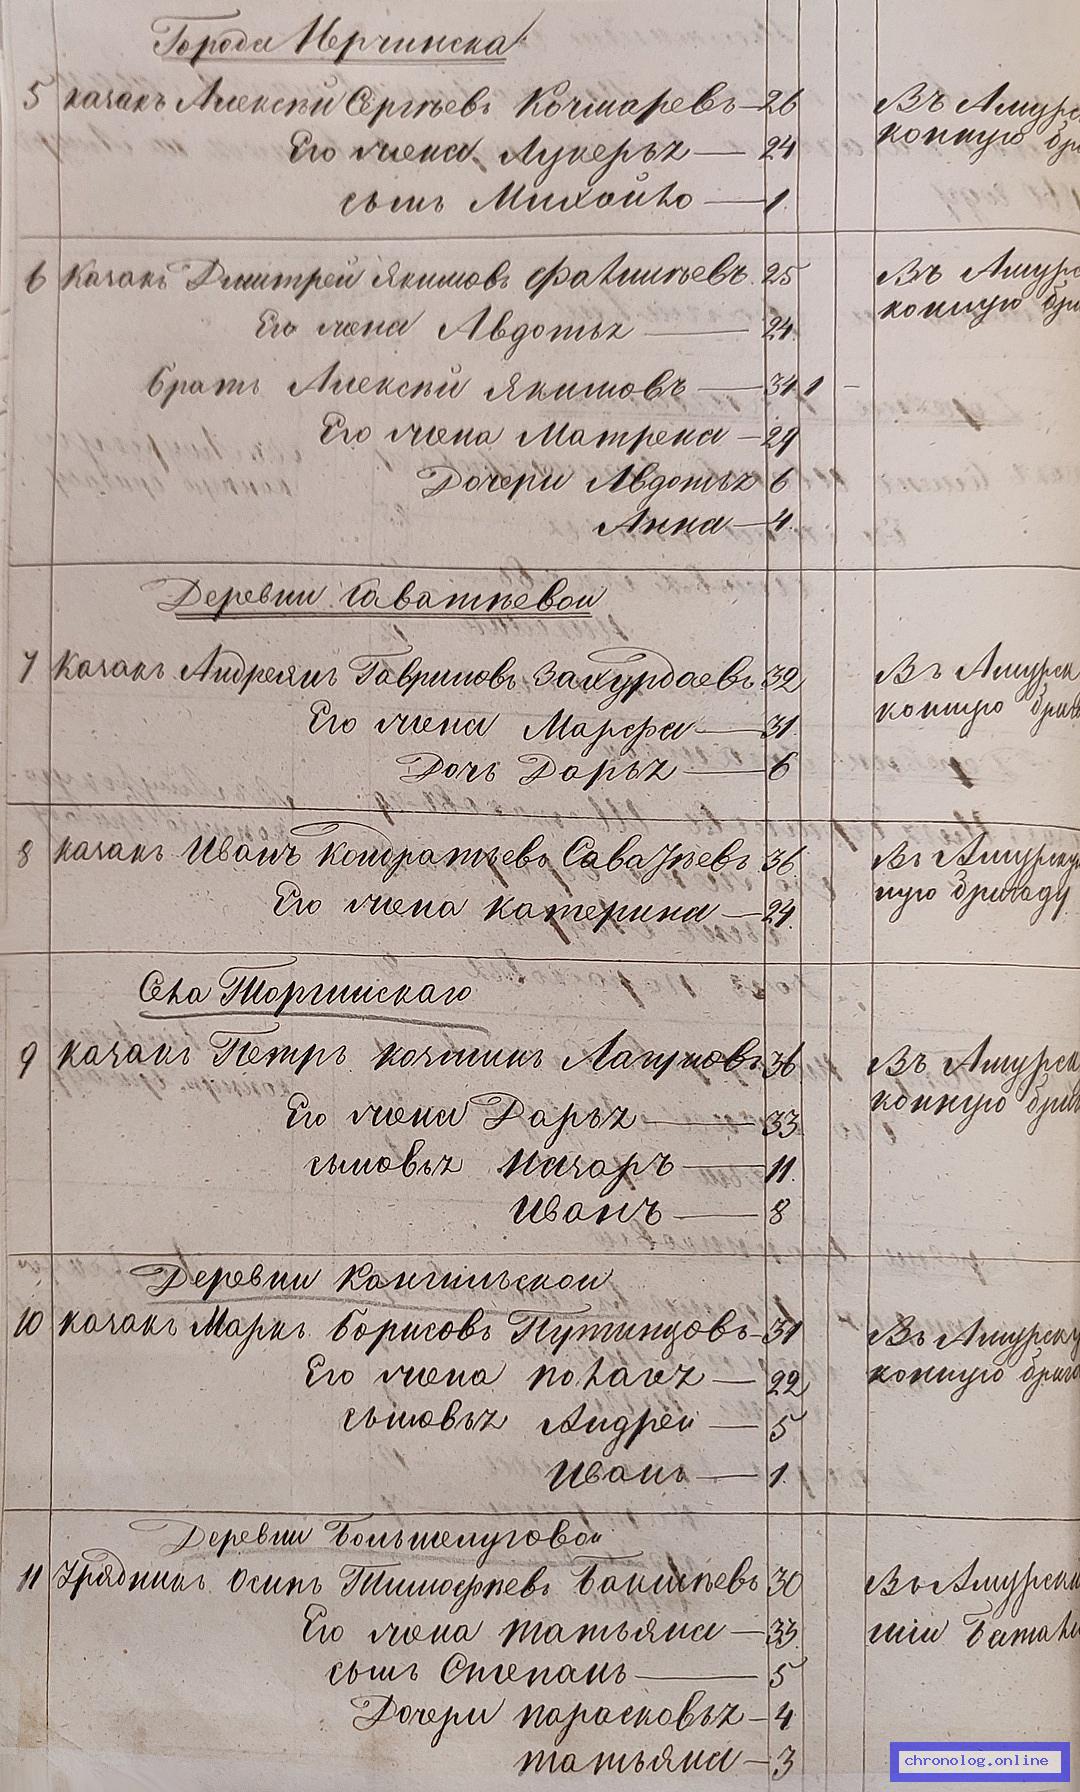 Города Нерчинска
5 казакъ Алексѣй Сергѣевъ Кочмаревъ — 26 Въ Амурс
Его жена Лукерья — 24 конную бри
сынъ Михойло — 1.
6 Казакъ Дмитрей Якимовъ Фалилѣевъ 25 Въ Амурс
Его жена Авдотья — 24 конную бри
братъ Алексѣй Якимовъ — 34 1 —
Его жена Матрена — 29
Дочери Авдотья 6
Анна — 4.
Деревни Саватѣевой
7 Казакъ Андреянъ Гавриловъ Захурдаевъ 32 Въ Амурск
Его жена Марфа — 31 конную брига
Дочь Дарья — 6
8 казакъ Иванъ Кондратьевъ Саватѣевъ 36 Въ Амурскую
Его жена катерина — 24 ную бригаду
Села Торгинскаго
9 казакъ Петръ козминъ Лапуховъ 36 Въ Амурск
Его жена Дарья — 33 конную брига
сыновья Назаръ — 11.
Иванъ — 8
Деревни Кангильской
10 казакъ Маркъ Борисовъ Путинцовъ — 31 Въ Амурску
Его жена пелагея — 22 конную брига
сыновья Андрей — 5
Иванъ — 1.
Деревни Большелуговой
11 Урядникъ Осипъ Тимофѣевъ Бакшѣевъ 30 Въ Амурски
Его жена татьяна — 33 шiй Батал
сынъ Степанъ — 5
Дочери парасковья — 4
татьяна — 3
chronolog.online